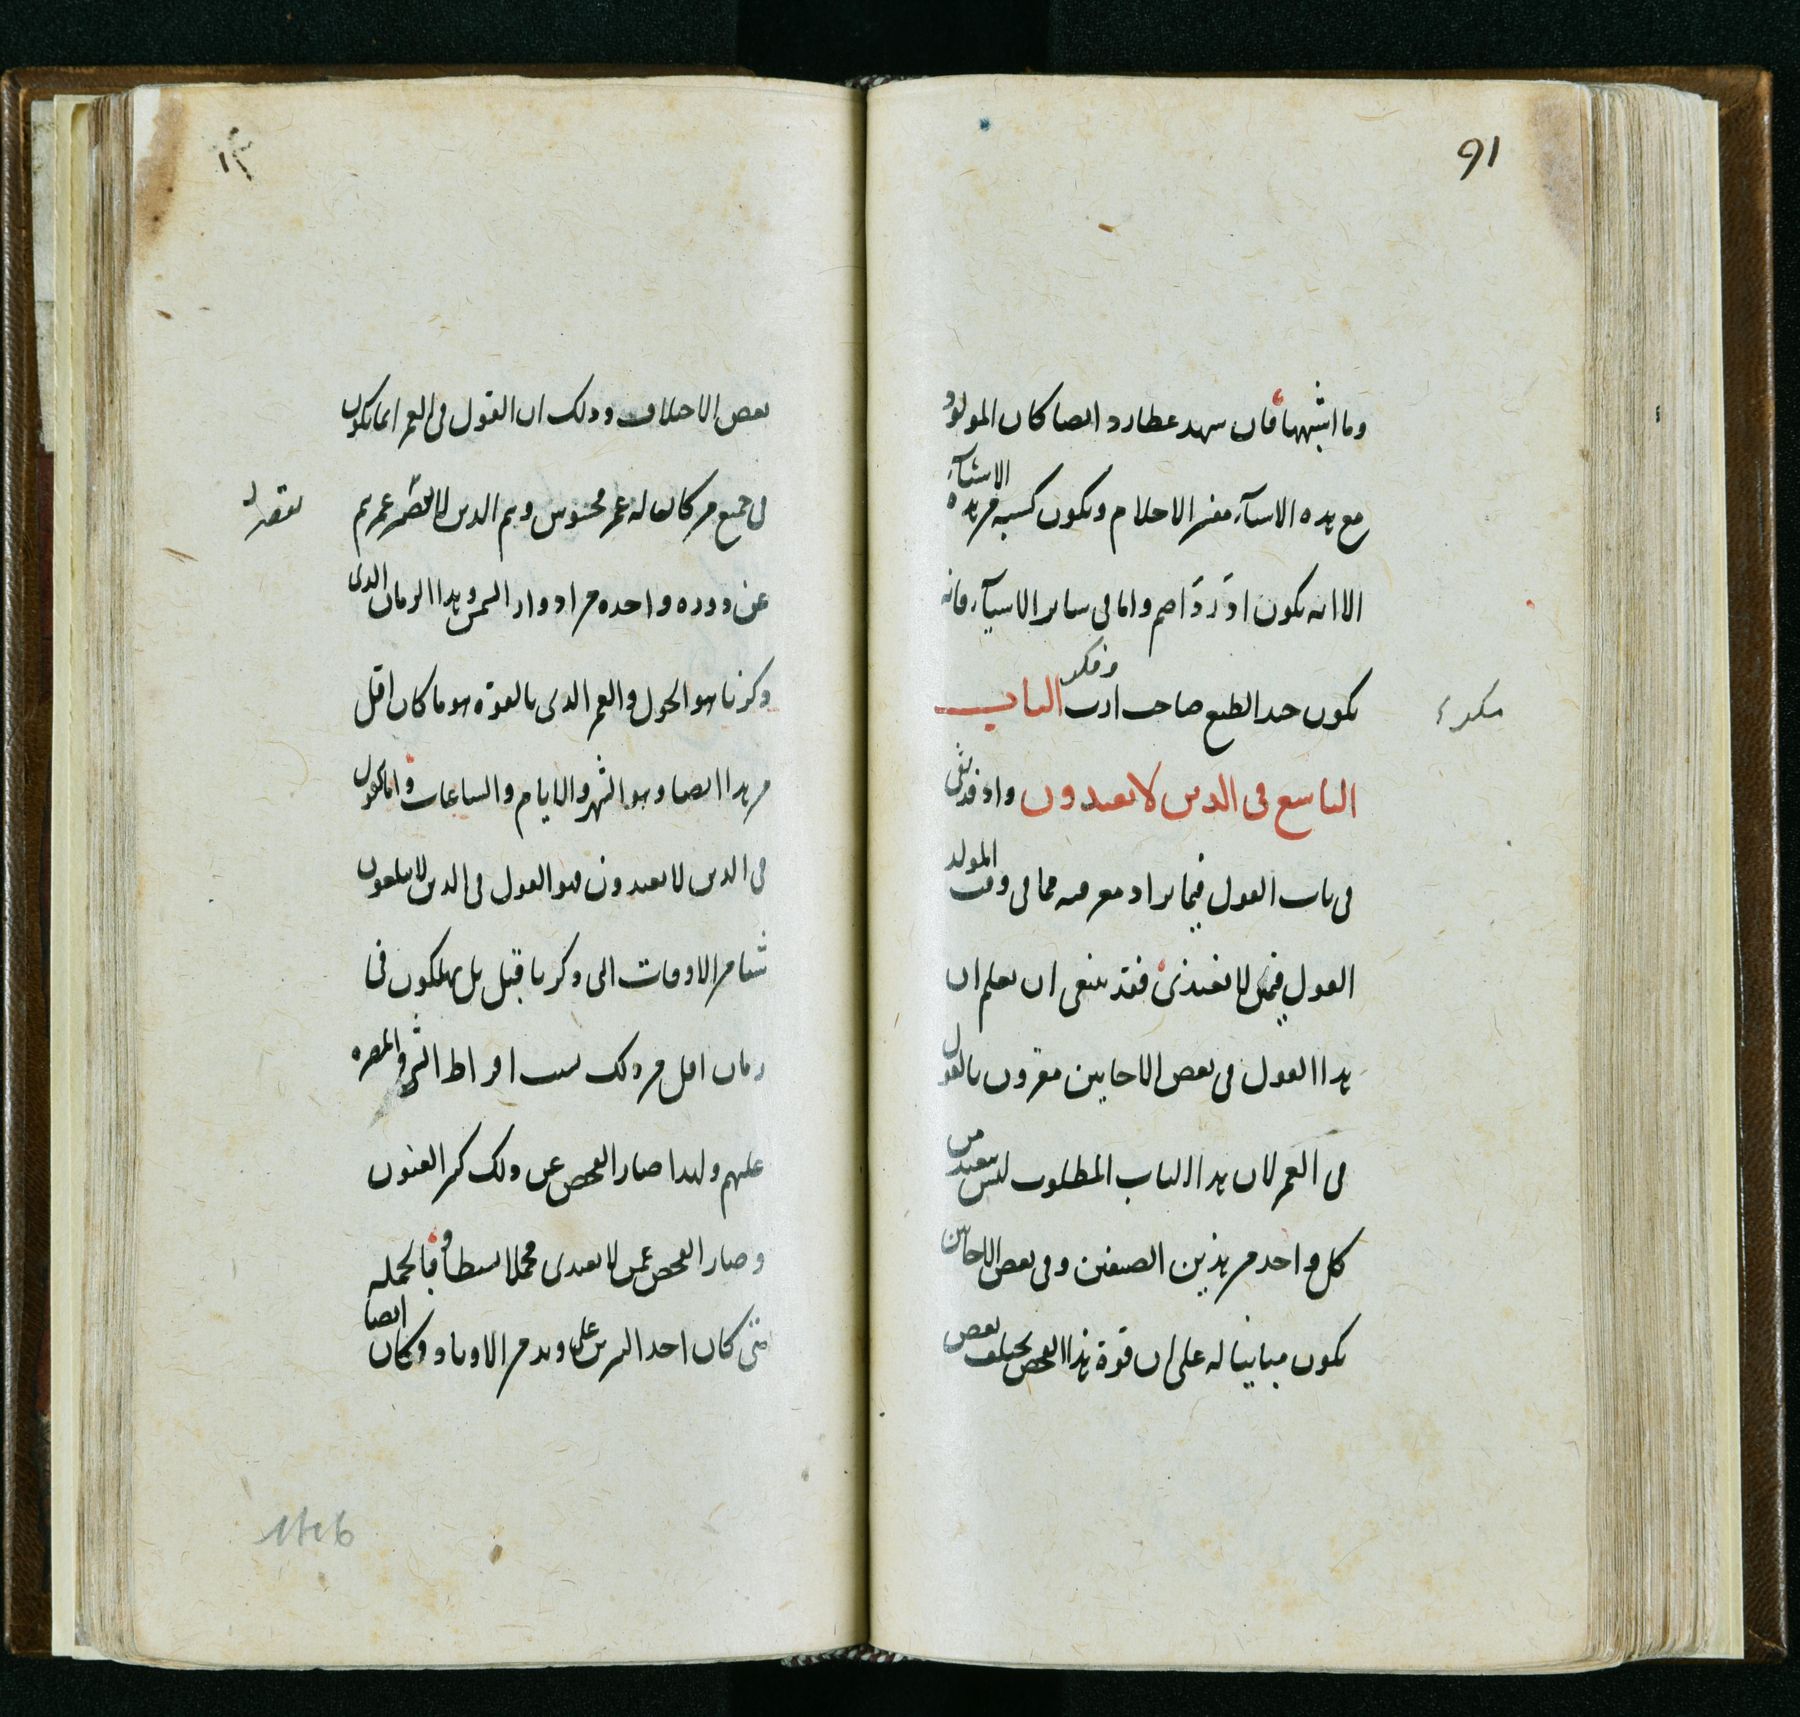 91
وما اشبهها فان شهد عطارد ايضا كان المولود
مع هذه الاشيآء مفسر الاحلام ويكون كسبه من هذه الاشيآء
الا انه يكون اصم واما فى ساير الاشيآء فانه
يكون جيد الطبع صاحب ادب وفكر الباب
التاسع فى الذين لا يغتذون واذ قد بقى
فى باب القول فيما يراد معرفته مما فى وقت المولد
القول فيمن لا يغتذى فقد ينبغى ان يعلم ان
هذا القول فى بعض الاحايين مقرون بالقول
فى العمر لان هذا الباب المطلوب ليس ببعيد من
كل واحد من هذين الصنفين وفى بعض الاحايين
يكون مباينا له على ان قوة هذا الفحص يختلف بعض
بعض الاختلاف وذلك ان القول فى العمر انما يكون
فى جميع من كان له عمر محسوس وهم الذين لا يقصر عمرهم
عن دورة واحدة من ادوار الشمس وهذا الزمان الذى
ذكرنا هو الحول والعمر الذى بالقوة هو ما كان اقل
من هذا ايضا وهو الشهور والايام والساعات واما القول
فى الذين لا يغتذون فهو القول فى الذين لا يبلغون
شيئا من الاوقات التى ذكرنا قبل بل يهلكون فى
زمان اقل من ذلك بسبب افراط الشر والمضرة
عليهم ولهذا صار الفحص عن ذلك كثير الفنون
وصار الفحص عمن لا يغتذى مجملا بسيطا فبالجملة
متى كان احد النيرين على وتد من الاوتاد وكان ايضا